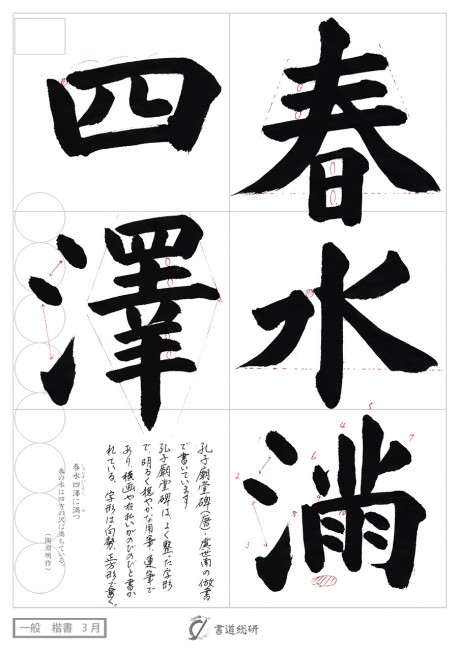 春水満
四澤
孔子廟堂碑(唐)虞世南の倣書
で書いています
孔子廟堂碑は、よく整った字形
で、明るく穏やかな用筆、運筆で
あり、横画や右払いがのびのびと書か
れている。字形は向勢、正方形で書く。
しゅんすい したく み
春水四澤に満つ
春の水は四方の沢に満ちている。
(陶淵明作)
1
2
3
4
5
6
7
8
9
10
一般 楷書 3月
書道総研